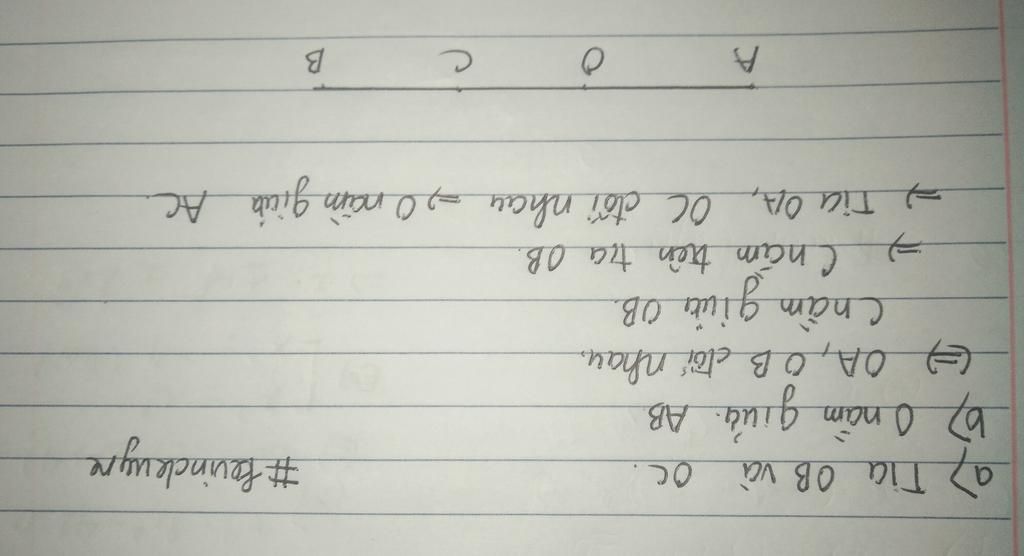 a) Tia OB và OC.
b) O nằm giữa AB
(=> OA, OB đối nhau.
C nằm giữa OB.
=> C nằm trên tia OB.
=> Tia OA, OC đối nhau => O nằm giữa AC.
A O C B